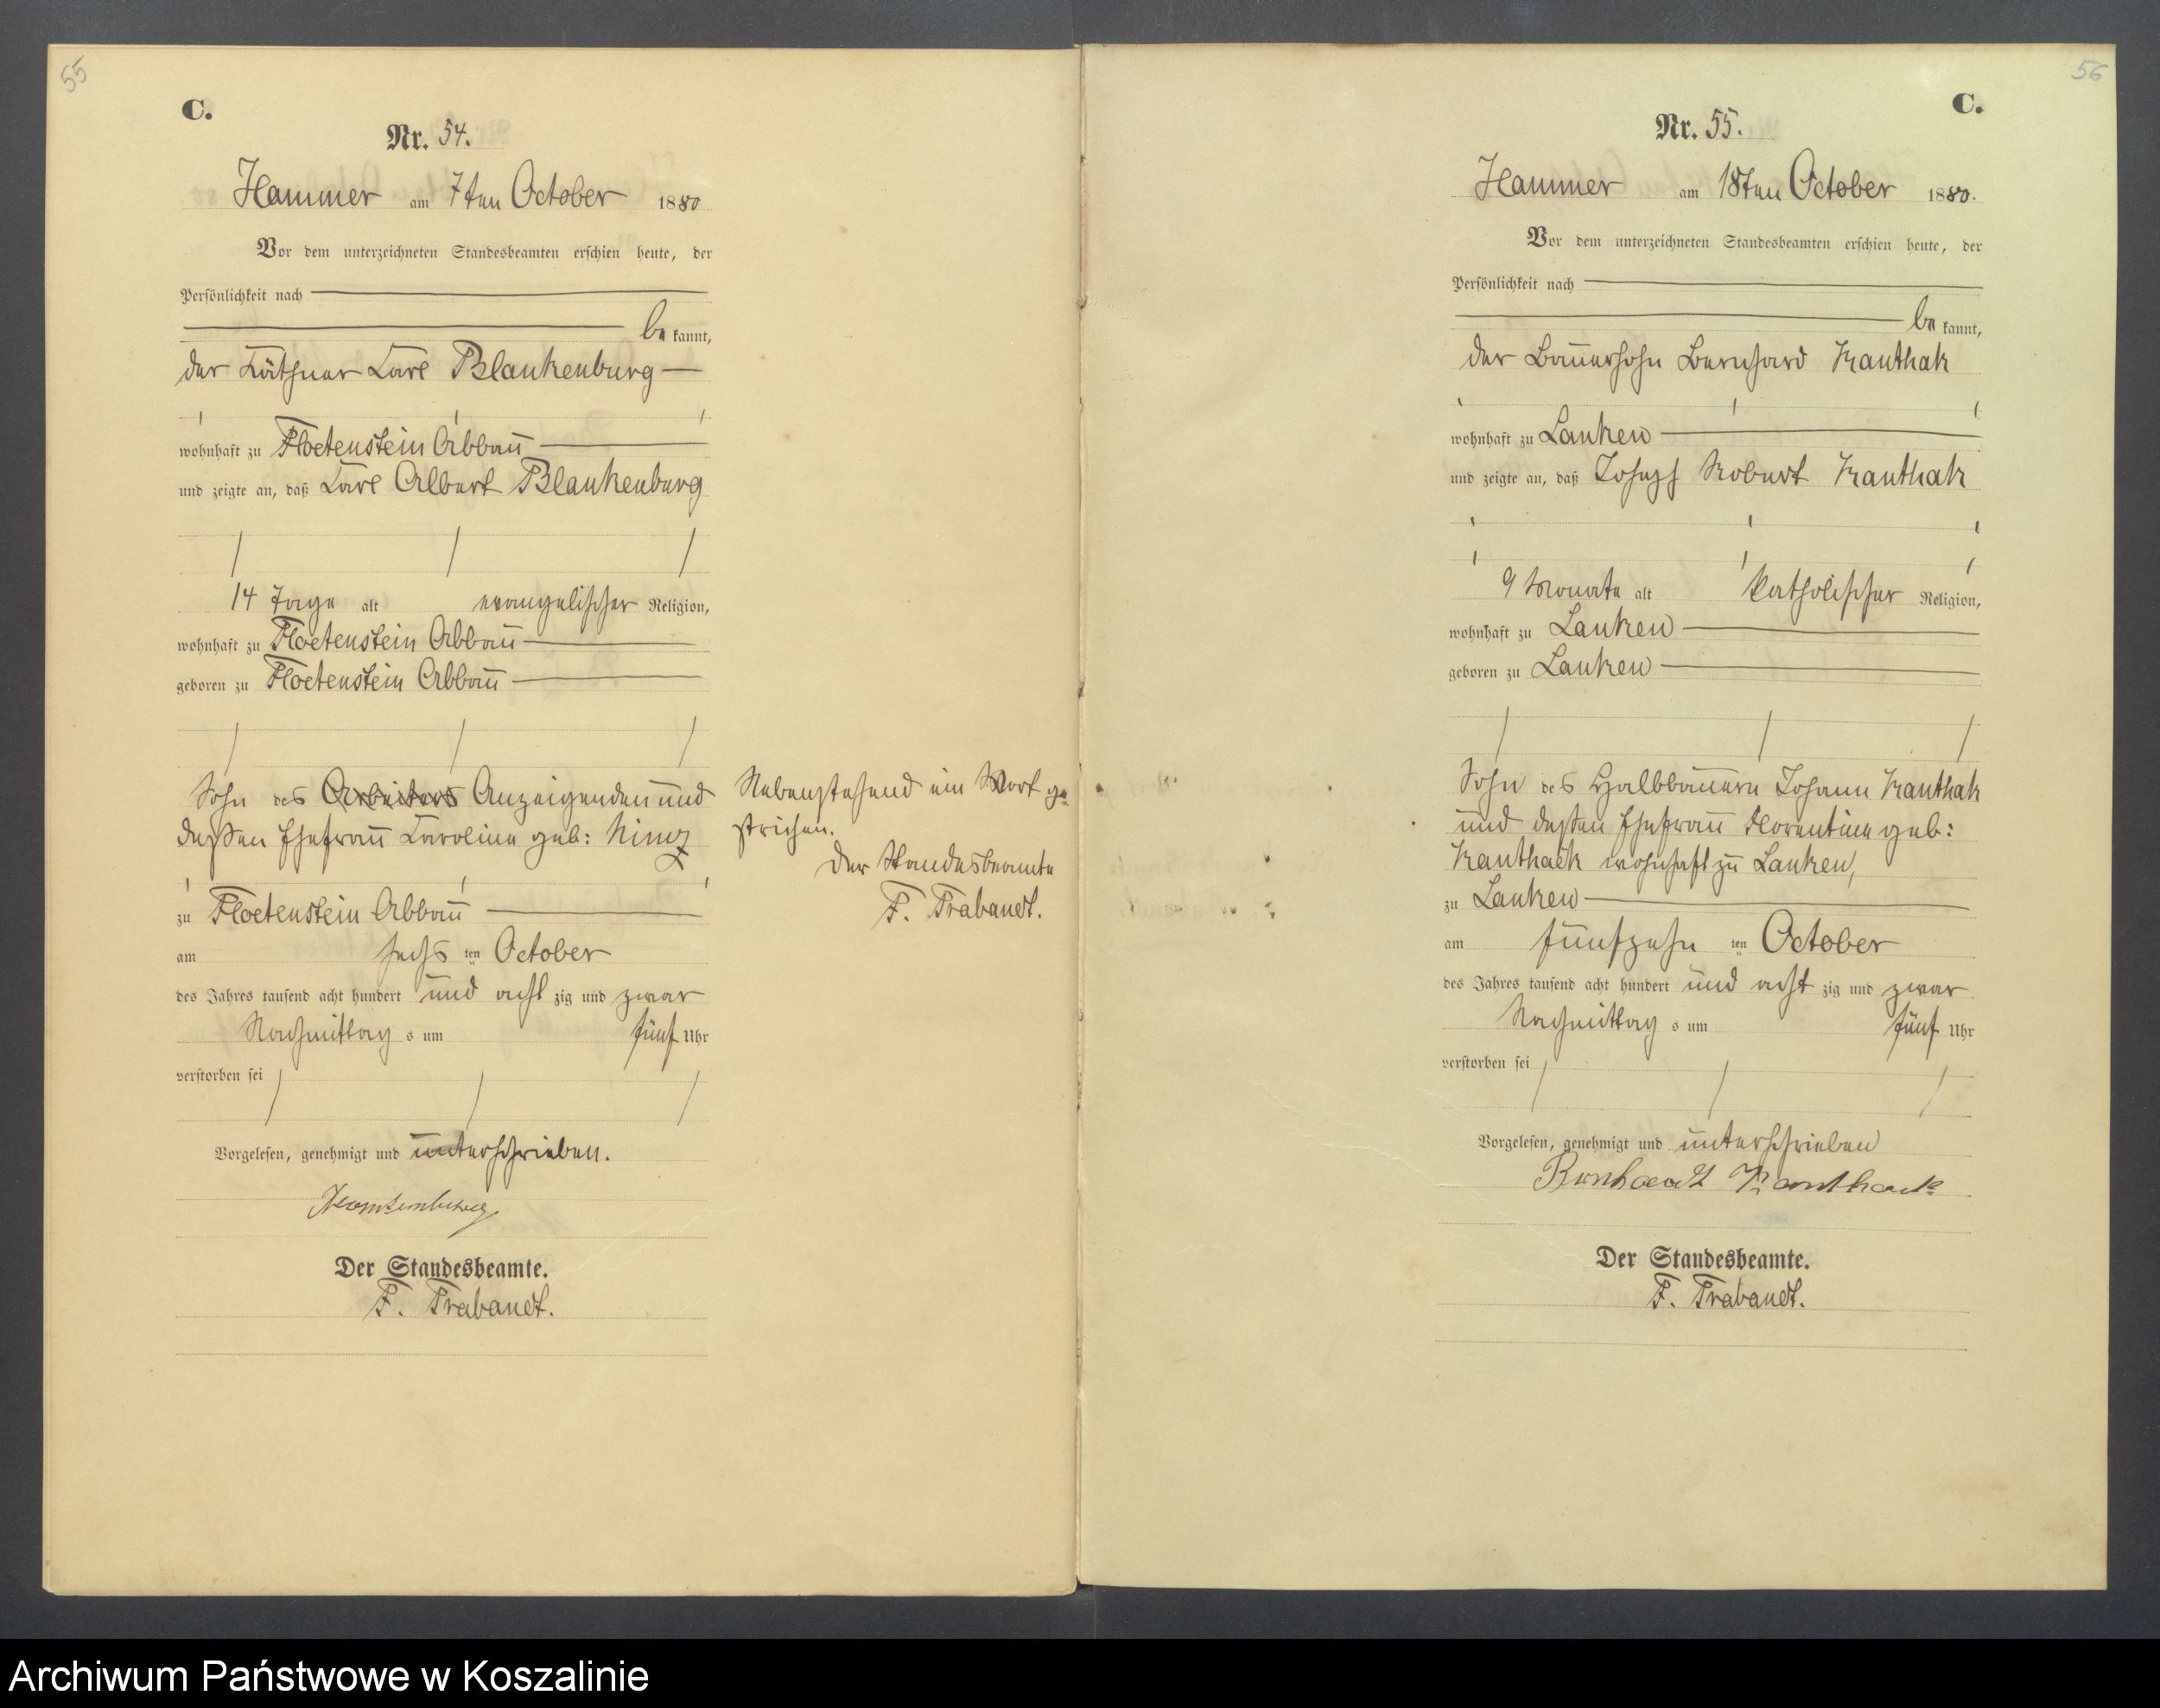 55
C.
Nr. 54.
Hammer am 7ten October 1880
Vor dem unterzeichneten Standesbeamten erschien heute, der
Persönlichkeit nach
be kannt,
der Käthner Carl Blankenburg
wohnhaft zu Floetenstein Abbau
und zeigte an, daß Carl Albert Blankenburg
14 Tage alt evangelischer Religion,
wohnhaft zu Floetenstein Abbau
geboren zu Floetenstein Abbau
Sohn des Arbeiters Anzeigenden und
dessen Ehefrau Caroline geb: Nimz
zu Floetenstein Abbau
am sechs ten October
des Jahres tausend acht hundert und acht zig und zwar
Nachmittag s um fünf Uhr
verstorben sei
Vorgelesen, genehmigt und unterschrieben.
Der Standesbeamte.
F. Trabandt.
Nebenstehend ein Wort ge-
strichen.
Der Standesbeamte
F. Trabandt.
56
C.
Nr. 55.
Hammer am 18ten October 1880.
Vor dem unterzeichneten Standesbeamten erschien heute, der
Persönlichkeit nach
be kannt,
der Bauersohn Bernhard Kanthak
wohnhaft zu Lanken
und zeigte an, daß Joseph Robert Kanthak
9 Monate alt katholischer Religion,
wohnhaft zu Lanken
geboren zu Lanken
Sohn des Halbbauern Johann Kanthak
und dessen Ehefrau Florentine geb:
Kanthack wohnhaft zu Lanken,
zu Lanken
am fünfzehn ten October
des Jahres tausend acht hundert und acht zig und zwar
Nachmittag s um fünf Uhr
verstorben sei
Vorgelesen, genehmigt und unterschrieben
Bernhardt Kanthack
Der Standesbeamte.
F. Trabandt.
Archiwum Państwowe w Koszalinie